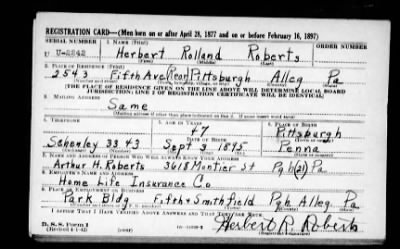 REGISTRATION CARD—(Men born on or after April 28, 1877 and on or before February 16, 1897)
SERIAL NUMBER 1. NAME (Print) ORDER NUMBER
U U-2542 Herbert Rolland Roberts
(First) (Middle) (Last)
2. PLACE OF RESIDENCE (Print)
2543 Fifth Ave (Rear) Pittsburgh Alleg Pa
[THE PLACE OF RESIDENCE GIVEN ON THE LINE ABOVE WILL DETERMINE LOCAL BOARD
JURISDICTION; LINE 2 OF REGISTRATION CERTIFICATE WILL BE IDENTICAL]
3. MAILING ADDRESS
Same
[Mailing address if other than place indicated on line 2. If same insert word same]
4. TELEPHONE 5. AGE IN YEARS 6. PLACE OF BIRTH
47 Pittsburgh
DATE OF BIRTH
Schenley 3343 Sept 3 1895 Penna
7. NAME AND ADDRESS OF PERSON WHO WILL ALWAYS KNOW YOUR ADDRESS
Arthur H. Roberts 3618 Montier St Pgh (21) Pa
8. EMPLOYER'S NAME AND ADDRESS
Home Life Insurance Co
9. PLACE OF EMPLOYMENT OR BUSINESS
Park Bldg Fifth & Smithfield Pgh Alleg Pa
I AFFIRM THAT I HAVE VERIFIED ABOVE ANSWERS AND THAT THEY ARE TRUE.
D. S. S. Form 1
(Revised 4-1-42) Herbert R. Roberts